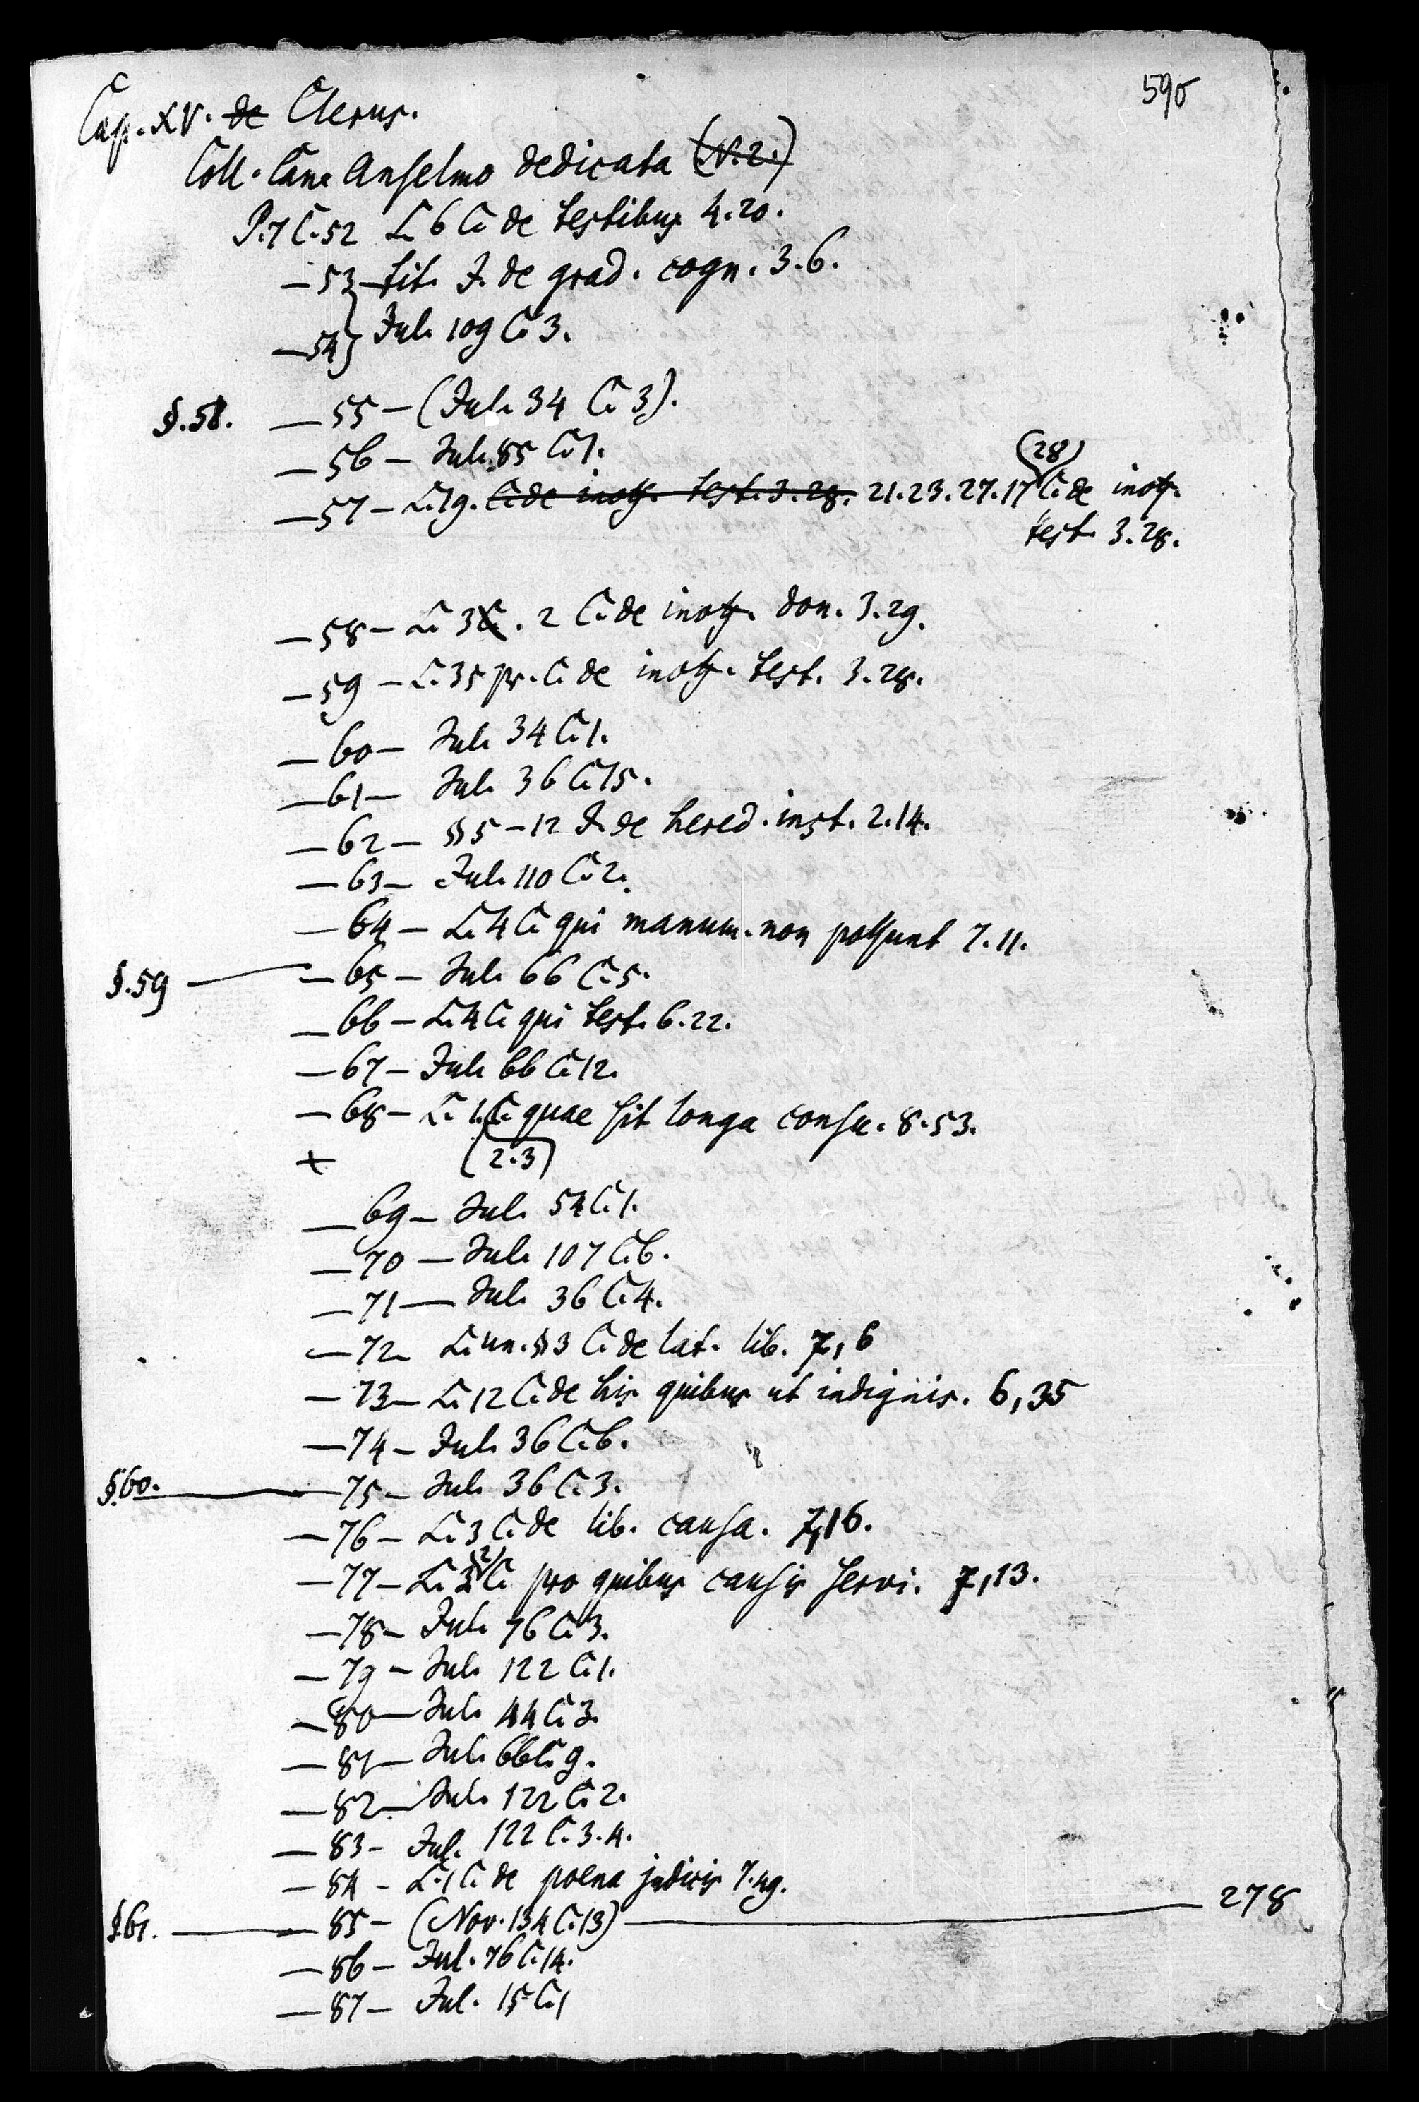 590
Cap. XV. de Clerus.
Coll. Can. Anselmo dedicata (N. 2.)
P. 7 C. 52 L. 6 C. de testibus 4.20.
— 53 — tit. J. de grad. cogn. 3.6.
— 54 } Jul. 109 C. 3.
§. 58. — 55 — (Jul. 34 C. 3).
— 56 — Jul. 85 C. 1.
— 57 — L. 19. C. de inoff. test. 3.28. 21.23.27.17 (28) C. de inoff.
test. 3.28.
— 58 — L. 3 C. 2 C. de inoff. don. 3.29.
— 59 — L. 35 pr. C. de inoff. test. 3.28.
— 60 — Jul. 34 C. 1.
— 61 — Jul. 36 C. 15.
— 62 — §§ 5–12 J. de hered. inst. 2.14.
— 63 — Jul. 110 C. 2.
— 64 — L. 4 C. qui manum. non possunt 7.11.
§. 59 — 65 — Jul. 66 C. 5.
— 66 — L. 4 C. qui test. 6.22.
— 67 — Jul. 66 C. 12.
— 68 — L. 1. C. quae sit longa consu. 8.53.
+ (2.3)
— 69 — Jul. 54 C. 1.
— 70 — Jul. 107 C. 6.
— 71 — Jul. 36 C. 4.
— 72 — L. un. § 3 C. de lat. lib. 7,6
— 73 — L. 12 C. de his quibus ut indignis. 6,35
— 74 — Jul. 36 C. 6.
§. 60. — 75 — Jul. 36 C. 3.
— 76 — L. 3 C. de lib. causa. 7,16.
— 77 — L. 2 C. pro quibus causis servi. 7,13.
— 78 — Jul. 76 C. 3.
— 79 — Jul. 122 C. 1.
— 80 — Jul. 44 C. 3.
— 81 — Jul. 66 C. 9.
— 82 — Jul. 122 C. 2.
— 83 — Jul. 122 C. 3.4.
— 84 — L. 1 C. de poena judicis 7.49.
§ 61. — 85 — (Nov. 134 C. 13) — 278
— 86 — Jul. 76 C. 14.
— 87 — Jul. 15 C. 1